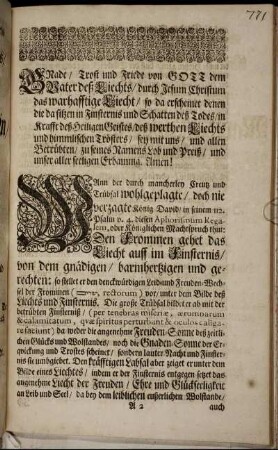 771
GNade/ Trost und Friede von GOTT dem
Vater deß Liechts/ durch Jesum Christum
das warhafftige Liecht/ so da erscheinet denen
die da sitzen in Finsternis und Schatten deß Todes/ in
Krafft des Heiligen Geistes/ deß werthen Liechts
und himmlischen Trösters/ sey mit uns/ und allen
Betrübten/ zu seines Namens Lob und Preiß/ und
unser aller seeligen Erbauung. Amen!
WAnn der durch mancherley Creutz und
Trübsal wohlgeplagte/ doch nie
verzagte König David/ in seinem 112.
Psalm v. 4. diesen Aphorismum Rega-
lem, oder Königlichen Machtspruch thut:
Den Frommen gehet das
Liecht auff im Finsternis/
von dem gnädigen/ barmhertzigen und ge-
rechten: so stellet er den denckwürdigen Leid und Freuden-Wech-
sel der Frommen (rectorum) vor/ unter dem Bilde deß
Liechts und Finsternis. Die grosse Trübsal bildet er ab mit der
betrübten Finsterniß/ (per tenebras miseriæ, ærumnarum
& calamitatum, quæ spiritus perturbant & oculos caliga-
re faciunt) da weder die angenehme Freuden-Sonne deß zeitli-
chen Glücks und Wolstandes/ noch die Gnaden-Sonne der Er-
quickung und Trostes scheinet/ sondern lauter Nacht und Finster-
nis sie umbgiebet. Den kräfftigen Labsal aber zeiget er unter dem
Bilde eines Liechtes/ indem er der Finsternis entgegen setzet das
angenehme Liecht der Freuden/ Ehre und Glückseeligkeit
an Leib und Seel/ da bey dem leiblichen eusserlichen Wolstande/
A 2
auch